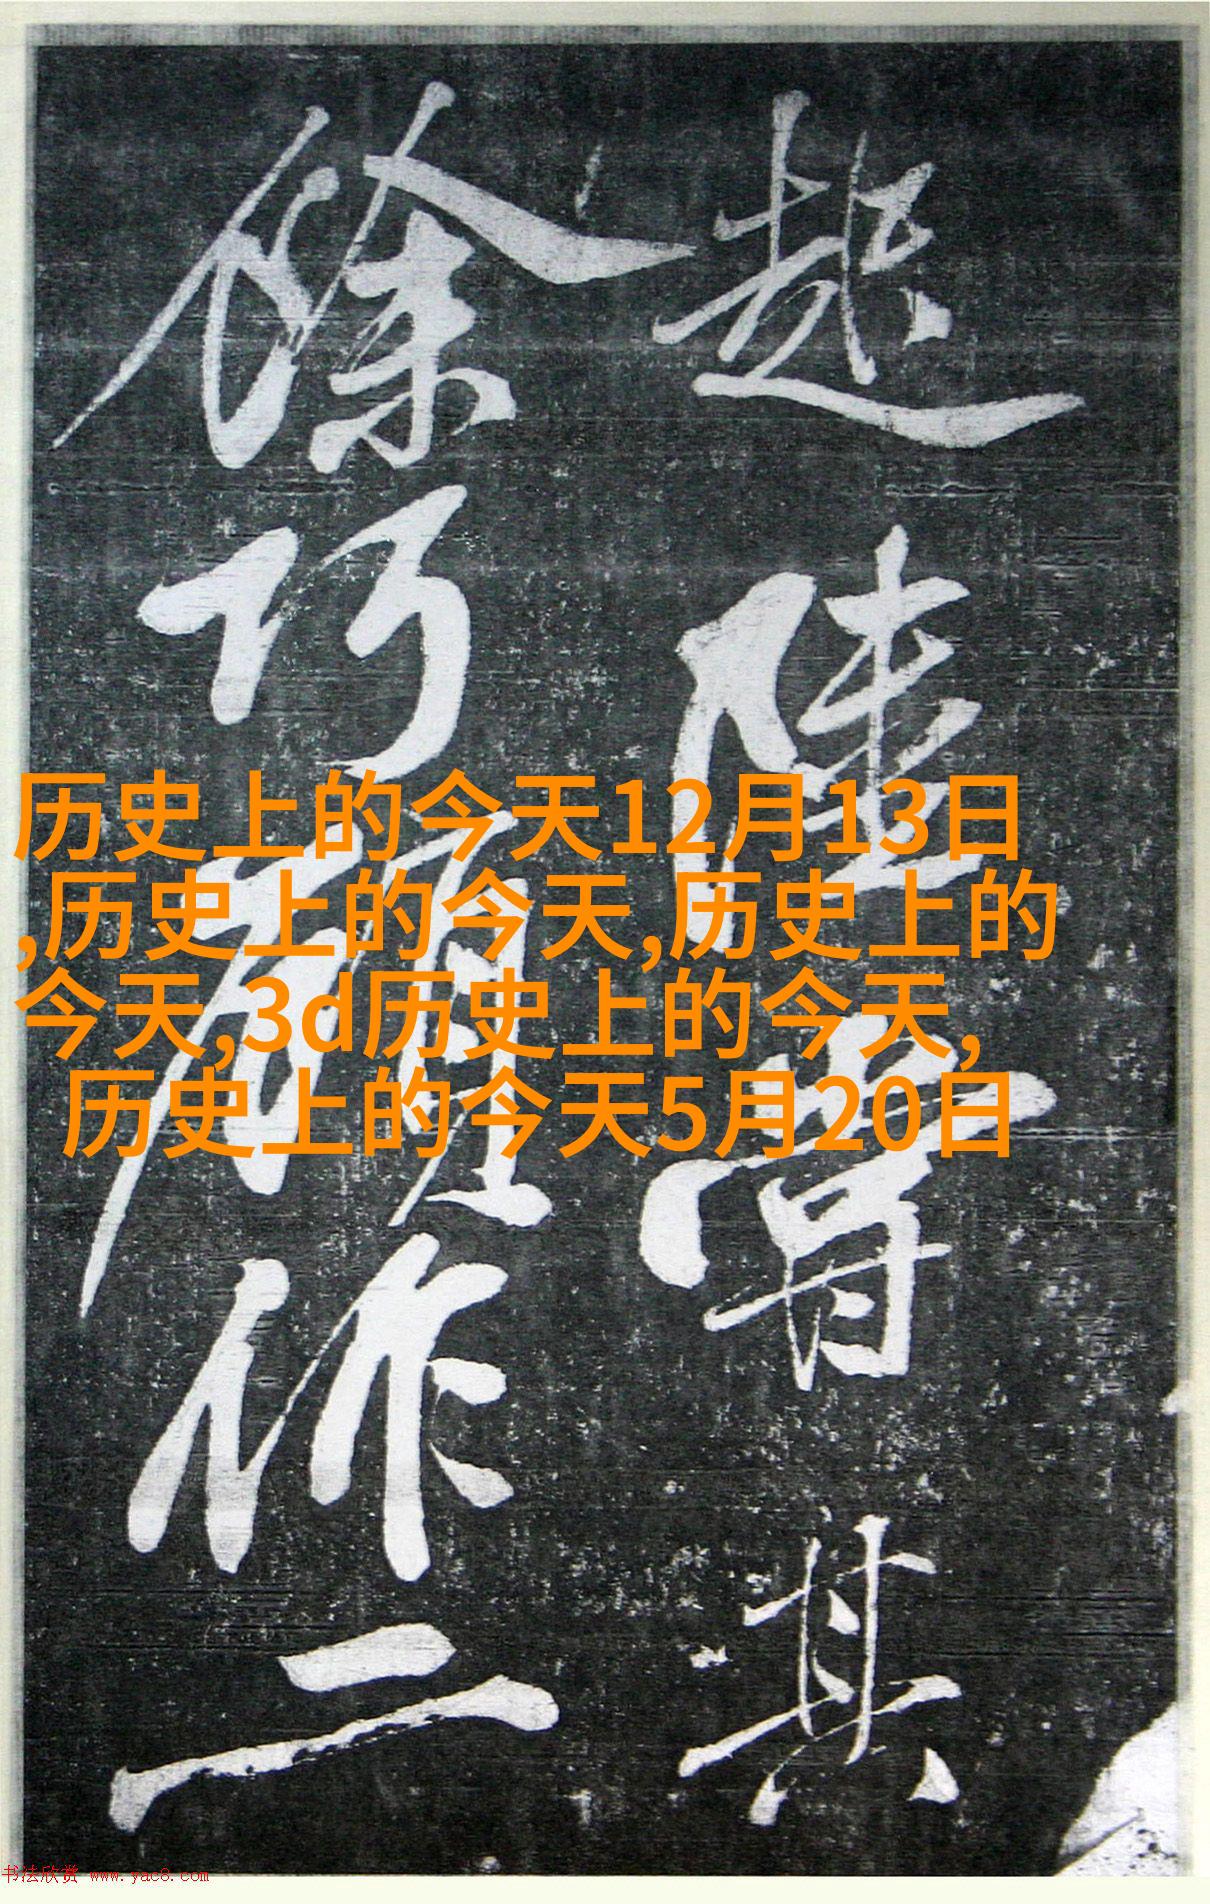 趙陸曹其
徐巧顏作二
历史上的今天12月13日
,历史上的今天,历史上的
今天,3d历史上的今天,
历史上的今天5月20日
书法欣赏 www.yac8.com